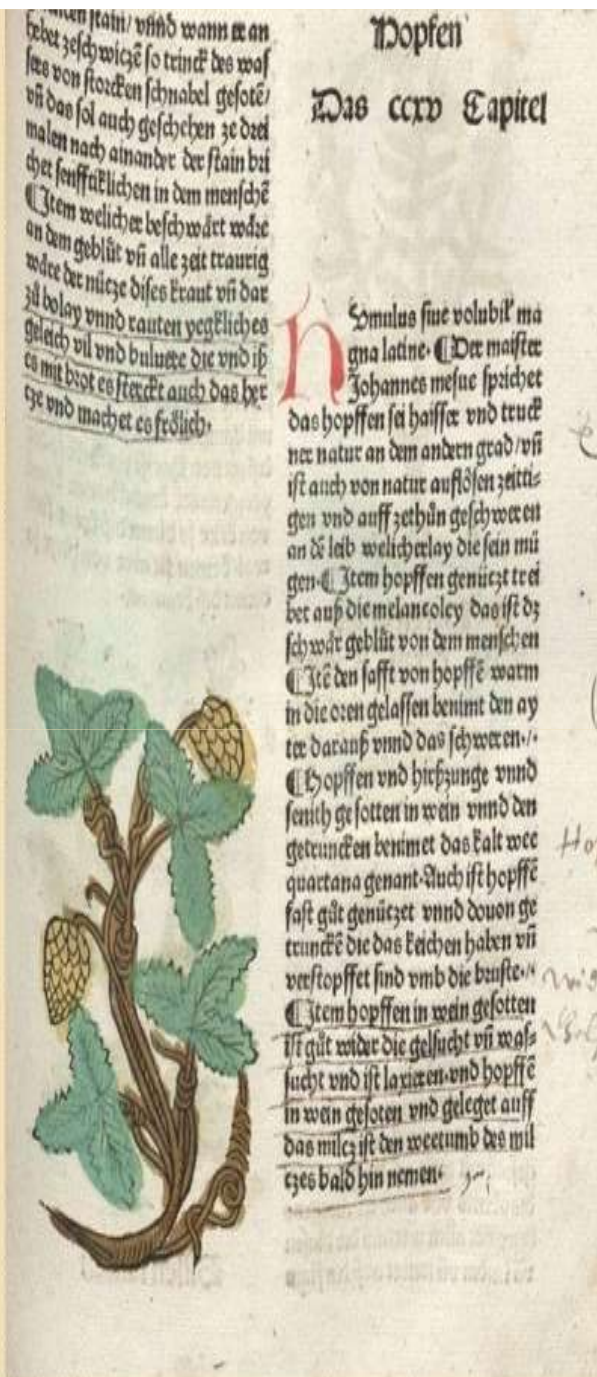 stain/ vnnd wann er an
hebet zeschwiczē so trinck des was
sers von storcken schnabel gesotē/
vñ das sol auch geschehen ze drei
malen nach ainander der stain bri
chet senfftiklichen in dem menschē
¶Item welicher beschwärt wäre
an dem geblůt vñ alle zeit traurig
wäre der nücze dises kraut vñ dar
zů bolay vnnd rauten yegkliches
geleich vil vnd buluere die vnd iß
es mit brot es sterckt auch das her
cze vnd machet es frölich·
Hopfen
Das ccxv Capitel
Homulus siue volubil' ma
gna latine· ¶Der maister
Johannes mesue sprichet
das hopffen sei haisser vnd truck
ner natur an dem andern grad/vñ
ist auch von natur auflösen zeitti⸗
gen vnd auff zethůn geschweren
an dē leib welicherlay die sein mü
gen·¶Item hopffen genüczt trei
bet auß die melancoley das ist dz
schwär geblůt von dem menschen
¶Itē den safft von hopffē warm
in die oren gelassen benimt den ay
ter darauß vnnd das schweren·/·
¶Hopffen vnd hirßzunge vnnd
fenich gesotten in wein vnnd den
getruncken benimet das kalt wee
quartana genant·Auch ist hopffē
fast gůt genüczet vnnd douon ge
trunckē die das keichen haben vñ
verstopffet sind vmb die bruste·/·
¶Item hopffen in wein gesotten
ist gůt wider die gelsucht vñ was⸗
sucht vnd ist laxieren·vnd hopffē
in wein gesoten vnd geleget auff
das milcz ist den weetumb des mil
czes bald hin nemen·